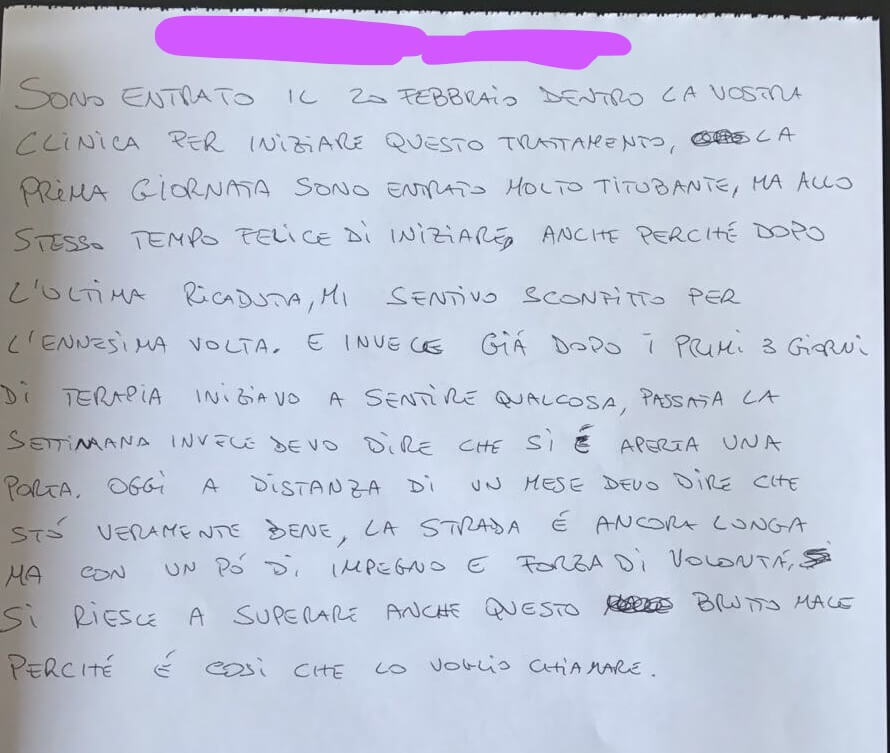 SONO ENTRATO IL 20 FEBBRAIO DENTRO LA VOSTRA
CLINICA PER INIZIARE QUESTO TRATTAMENTO, LA
PRIMA GIORNATA SONO ENTRATO MOLTO TITUBANTE, MA ALLO
STESSO TEMPO FELICE DI INIZIARE, ANCHE PERCHÉ DOPO
L'ULTIMA RICADUTA, MI SENTIVO SCONFITTO PER
L'ENNESIMA VOLTA. E INVECE GIÁ DOPO I PRIMI 3 GIORNI
DI TERAPIA INIZIAVO A SENTIRE QUALCOSA, PASSATA LA
SETTIMANA INVECE DEVO DIRE CHE SI É APERTA UNA
PORTA. OGGI A DISTANZA DI UN MESE DEVO DIRE CHE
STÓ VERAMENTE BENE, LA STRADA É ANCORA LONGA
MA CON UN PÓ DI IMPEGNO E FORZA DI VOLONTÁ,
SI RIESCE A SUPERARE ANCHE QUESTO BRUTTO MALE
PERCHÉ É COSÌ CHE LO VOGLIO CHIAMARE.